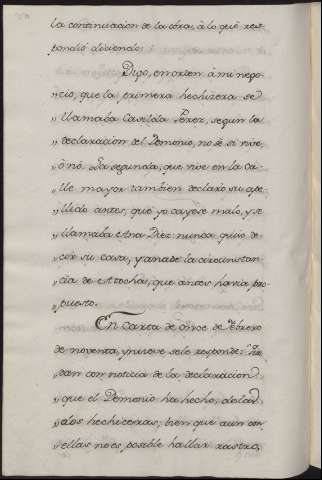 la continuacion de la obra, à lo que res-
pondiò diciendo:
Digo, en orden à mi nego-
"cio, que la primera hechizera se
"llamaba Casilda Perez, segun la
"declaracion del Demonio, no sè si vive,
"ò nò. La segunda, que vive en la Ca-
"lle mayor tambien declarò su ape-
"llido antes, que yo cayese malo, y se
"llamaba Ana Diez: nunca quiso de-
"cir su casa, y añade la circunstan-
"cia de Atocha, que antes havia pro-
"puesto.
En Carta de Once de Febrero
de noventa, y nueve se le responde: "Que-
"dan con noticia de la declaracion
"que el Demonio ha hecho, de las
"dos hechiceras; bien que aun con
"ellas no es posible hallar rastro,